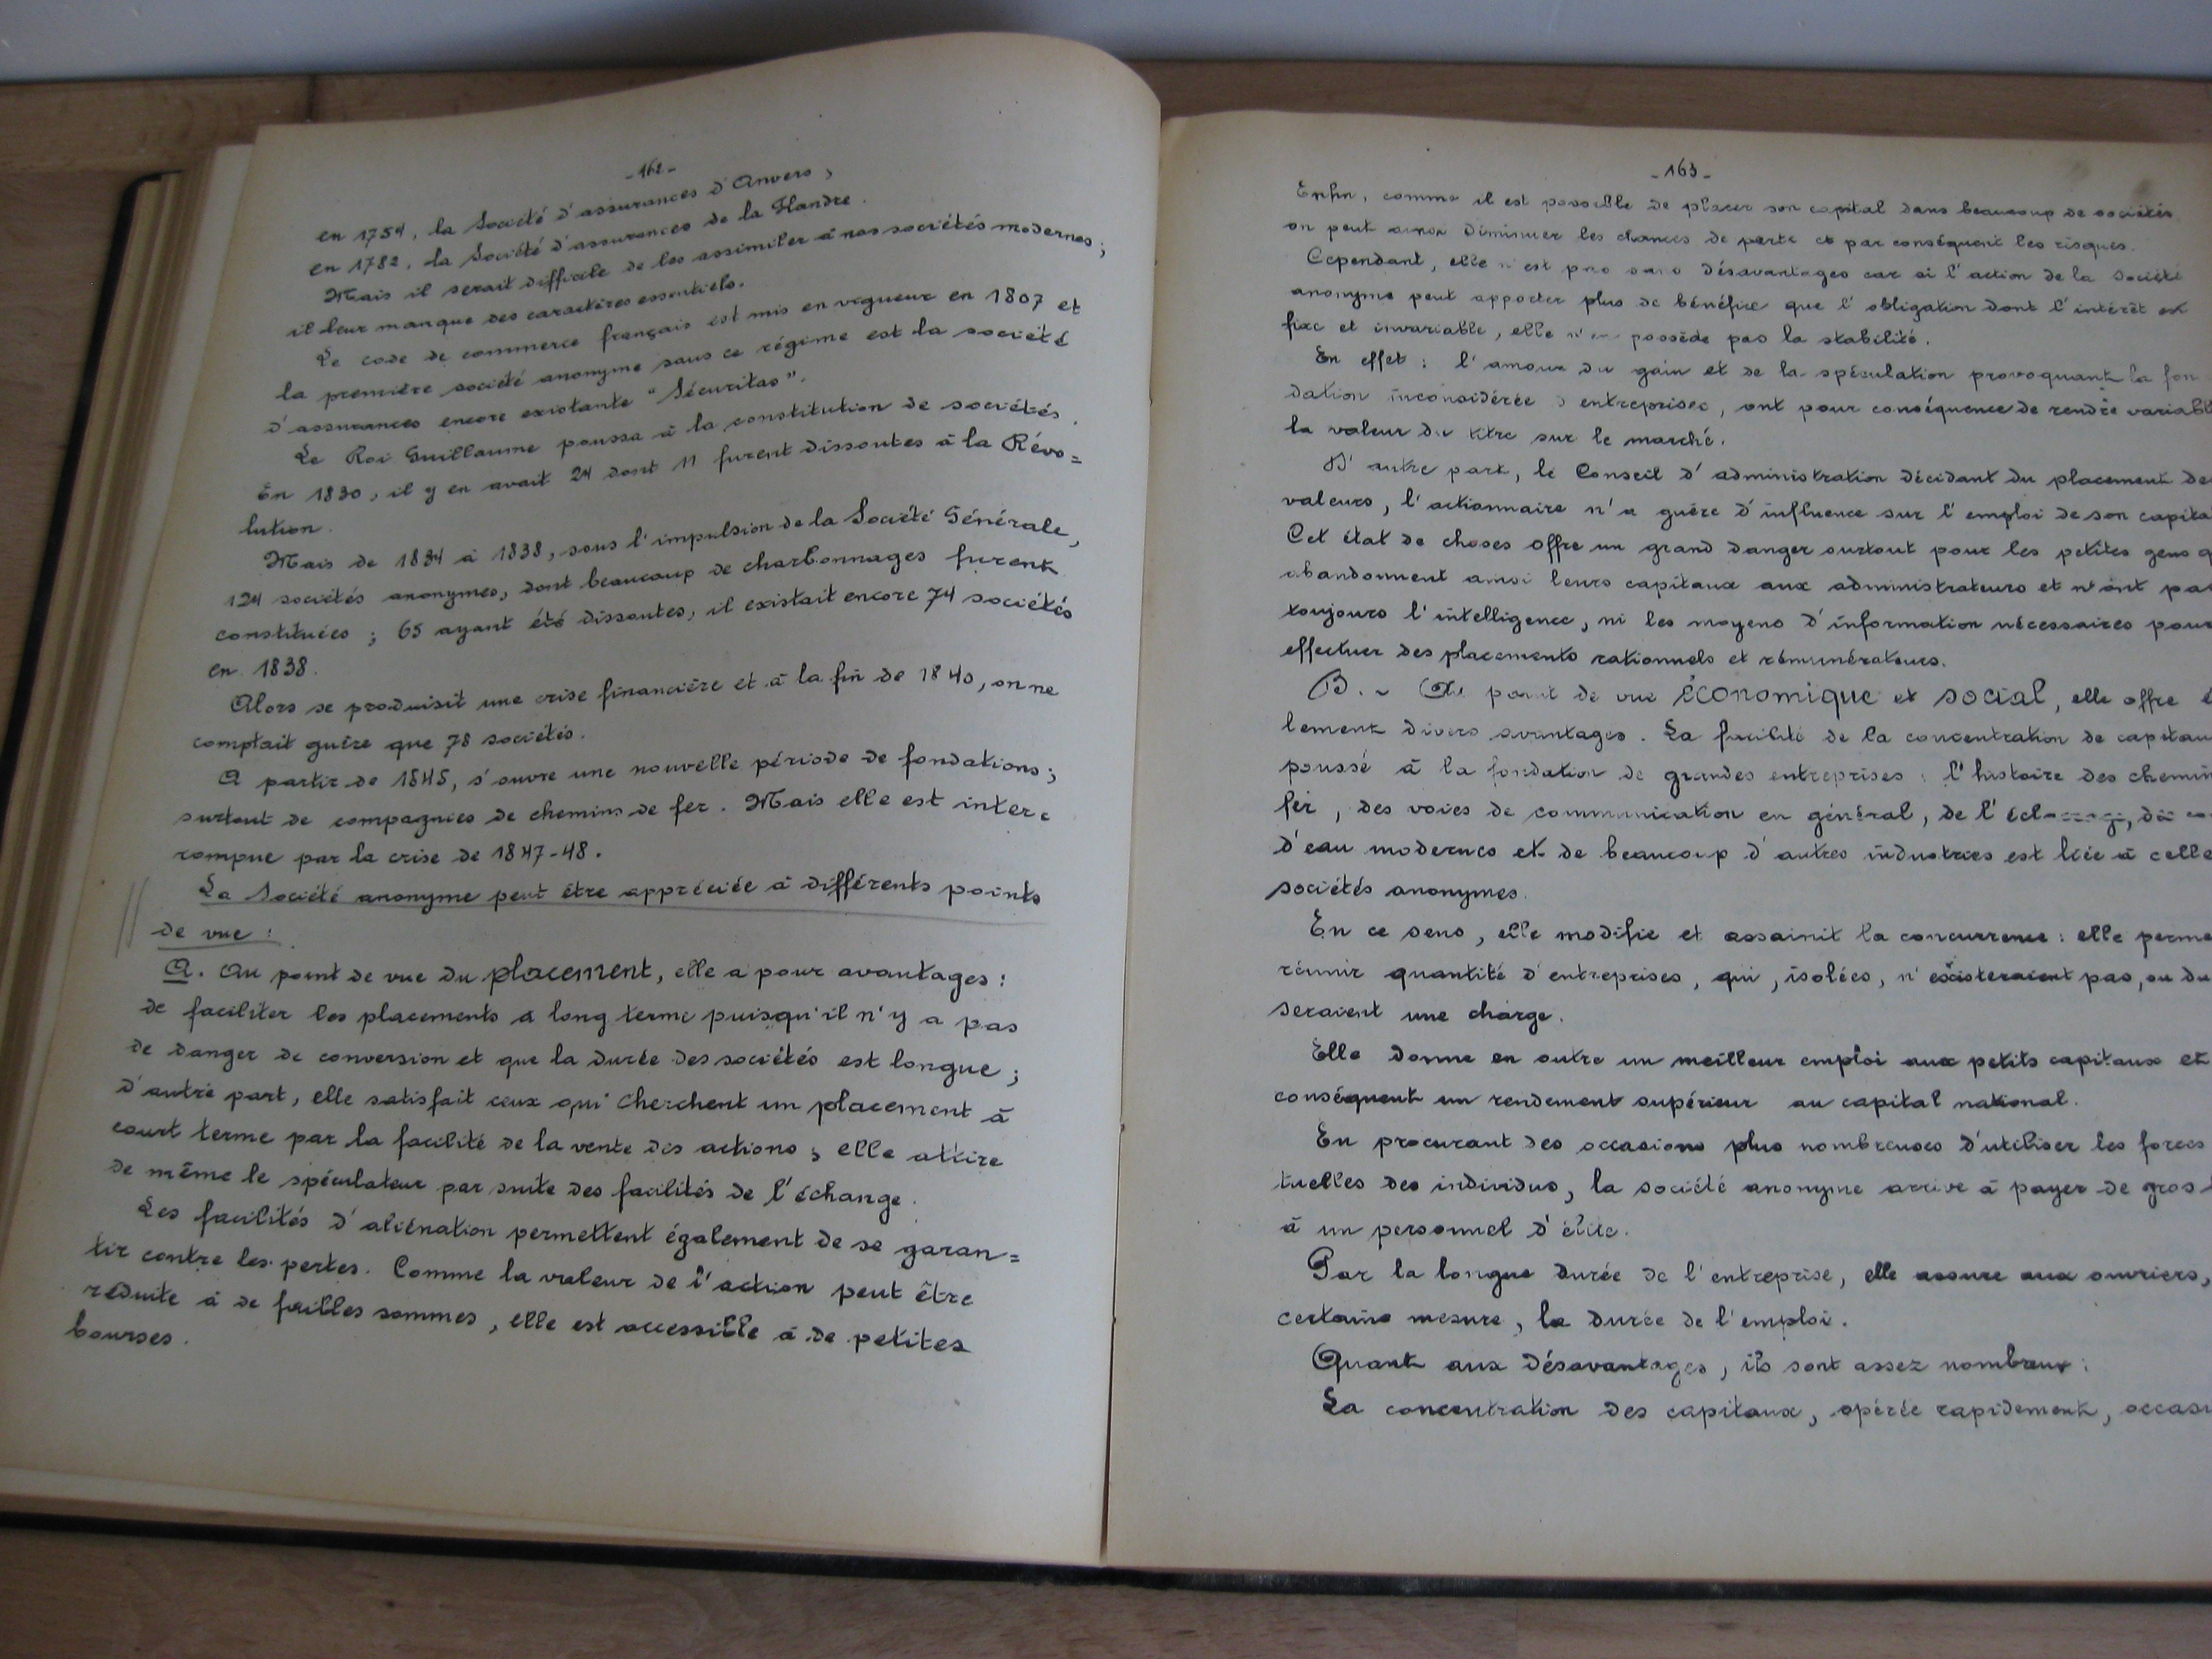 - 162 -
en 1754, la Société d'assurances d'Anvers,
en 1782, la Société d'assurances de la Flandre.
Mais il serait difficile de les assimiler à nos sociétés modernes;
il leur manque des caractères essentiels.
Le code de commerce français est mis en vigueur en 1807 et
la première société anonyme sous ce régime est la société
d'assurances encore existante "Sécuritas".
Le Roi Guillaume poussa à la constitution de sociétés.
En 1830, il y en avait 24 dont 11 furent dissoutes à la Révo=
lution.
Mais de 1834 à 1838, sous l'impulsion de la Société Générale,
124 sociétés anonymes, dont beaucoup de charbonnages furent
constituées ; 65 ayant été dissoutes, il existait encore 74 sociétés
en 1838.
Alors se produisit une crise financière et à la fin de 1840, on ne
comptait guère que 78 sociétés.
A partir de 1845, s'ouvre une nouvelle période de fondations;
surtout de compagnies de chemins de fer. Mais elle est inter=
rompue par la crise de 1847-48.
La Société anonyme peut être appréciée à différents points
de vue :
A. Au point de vue du placement, elle a pour avantages :
de faciliter les placements a long terme puisqu'il n'y a pas
de danger de conversion et que la durée des sociétés est longue ;
d'autre part, elle satisfait ceux qui cherchent un placement à
court terme par la facilité de la vente des actions ; elle attire
de même le spéculateur par suite des facilités de l'échange.
Les facilités d'aliénation permettent également de se garan=
tir contre les pertes. Comme la valeur de l'action peut être
réduite à de faibles sommes, elle est accessible à de petites
bourses.
- 163 -
Enfin, comme il est possible de placer son capital dans beaucoup de sociétés
on peut ainsi diminuer les chances de perte et par conséquent les risques.
Cependant, elle n'est pas sans désavantages car si l'action de la société
anonyme peut apporter plus de bénéfice que l'obligation dont l'intérêt est
fixe et invariable, elle n'en possède pas la stabilité.
En effet : l'amour du gain et de la spéculation provoquant la fon
dation inconsidérée d'entreprises, ont pour conséquence de rendre variabl
la valeur du titre sur le marché.
D'autre part, le Conseil d'administration décidant du placement de
valeurs, l'actionnaire n'a guère d'influence sur l'emploi de son capita
Cet état de choses offre un grand danger surtout pour les petites gens q
abandonnent ainsi leurs capitaux aux administrateurs et n'ont pa
toujours l'intelligence, ni les moyens d'information nécessaires pour
effectuer des placements rationnels et rémunérateurs.
B. - Au point de vue économique et social, elle offre é
lement divers avantages. La facilité de la concentration de capitau
poussé à la fondation de grandes entreprises : l'histoire des chemin
fer, des voies de communication en général, de l'éclairage, de
d'eau modernes et de beaucoup d'autres industries est liée à celle
sociétés anonymes.
En ce sens, elle modifie et assainit la concurrence : elle perme
réunir quantité d'entreprises, qui, isolées, n'existeraient pas, ou du
seraient une charge.
Elle donne en outre un meilleur emploi aux petits capitaux et
conséquent un rendement supérieur au capital national.
En procurant des occasions plus nombreuses d'utiliser les forces
tuelles des individus, la société anonyme arrive à payer de gros
à un personnel d'élite.
Par la longue durée de l'entreprise, elle assure aux ouvriers,
certaine mesure, la durée de l'emploi.
Quant aux désavantages, ils sont assez nombreux :
La concentration des capitaux, opérée rapidement, occasi